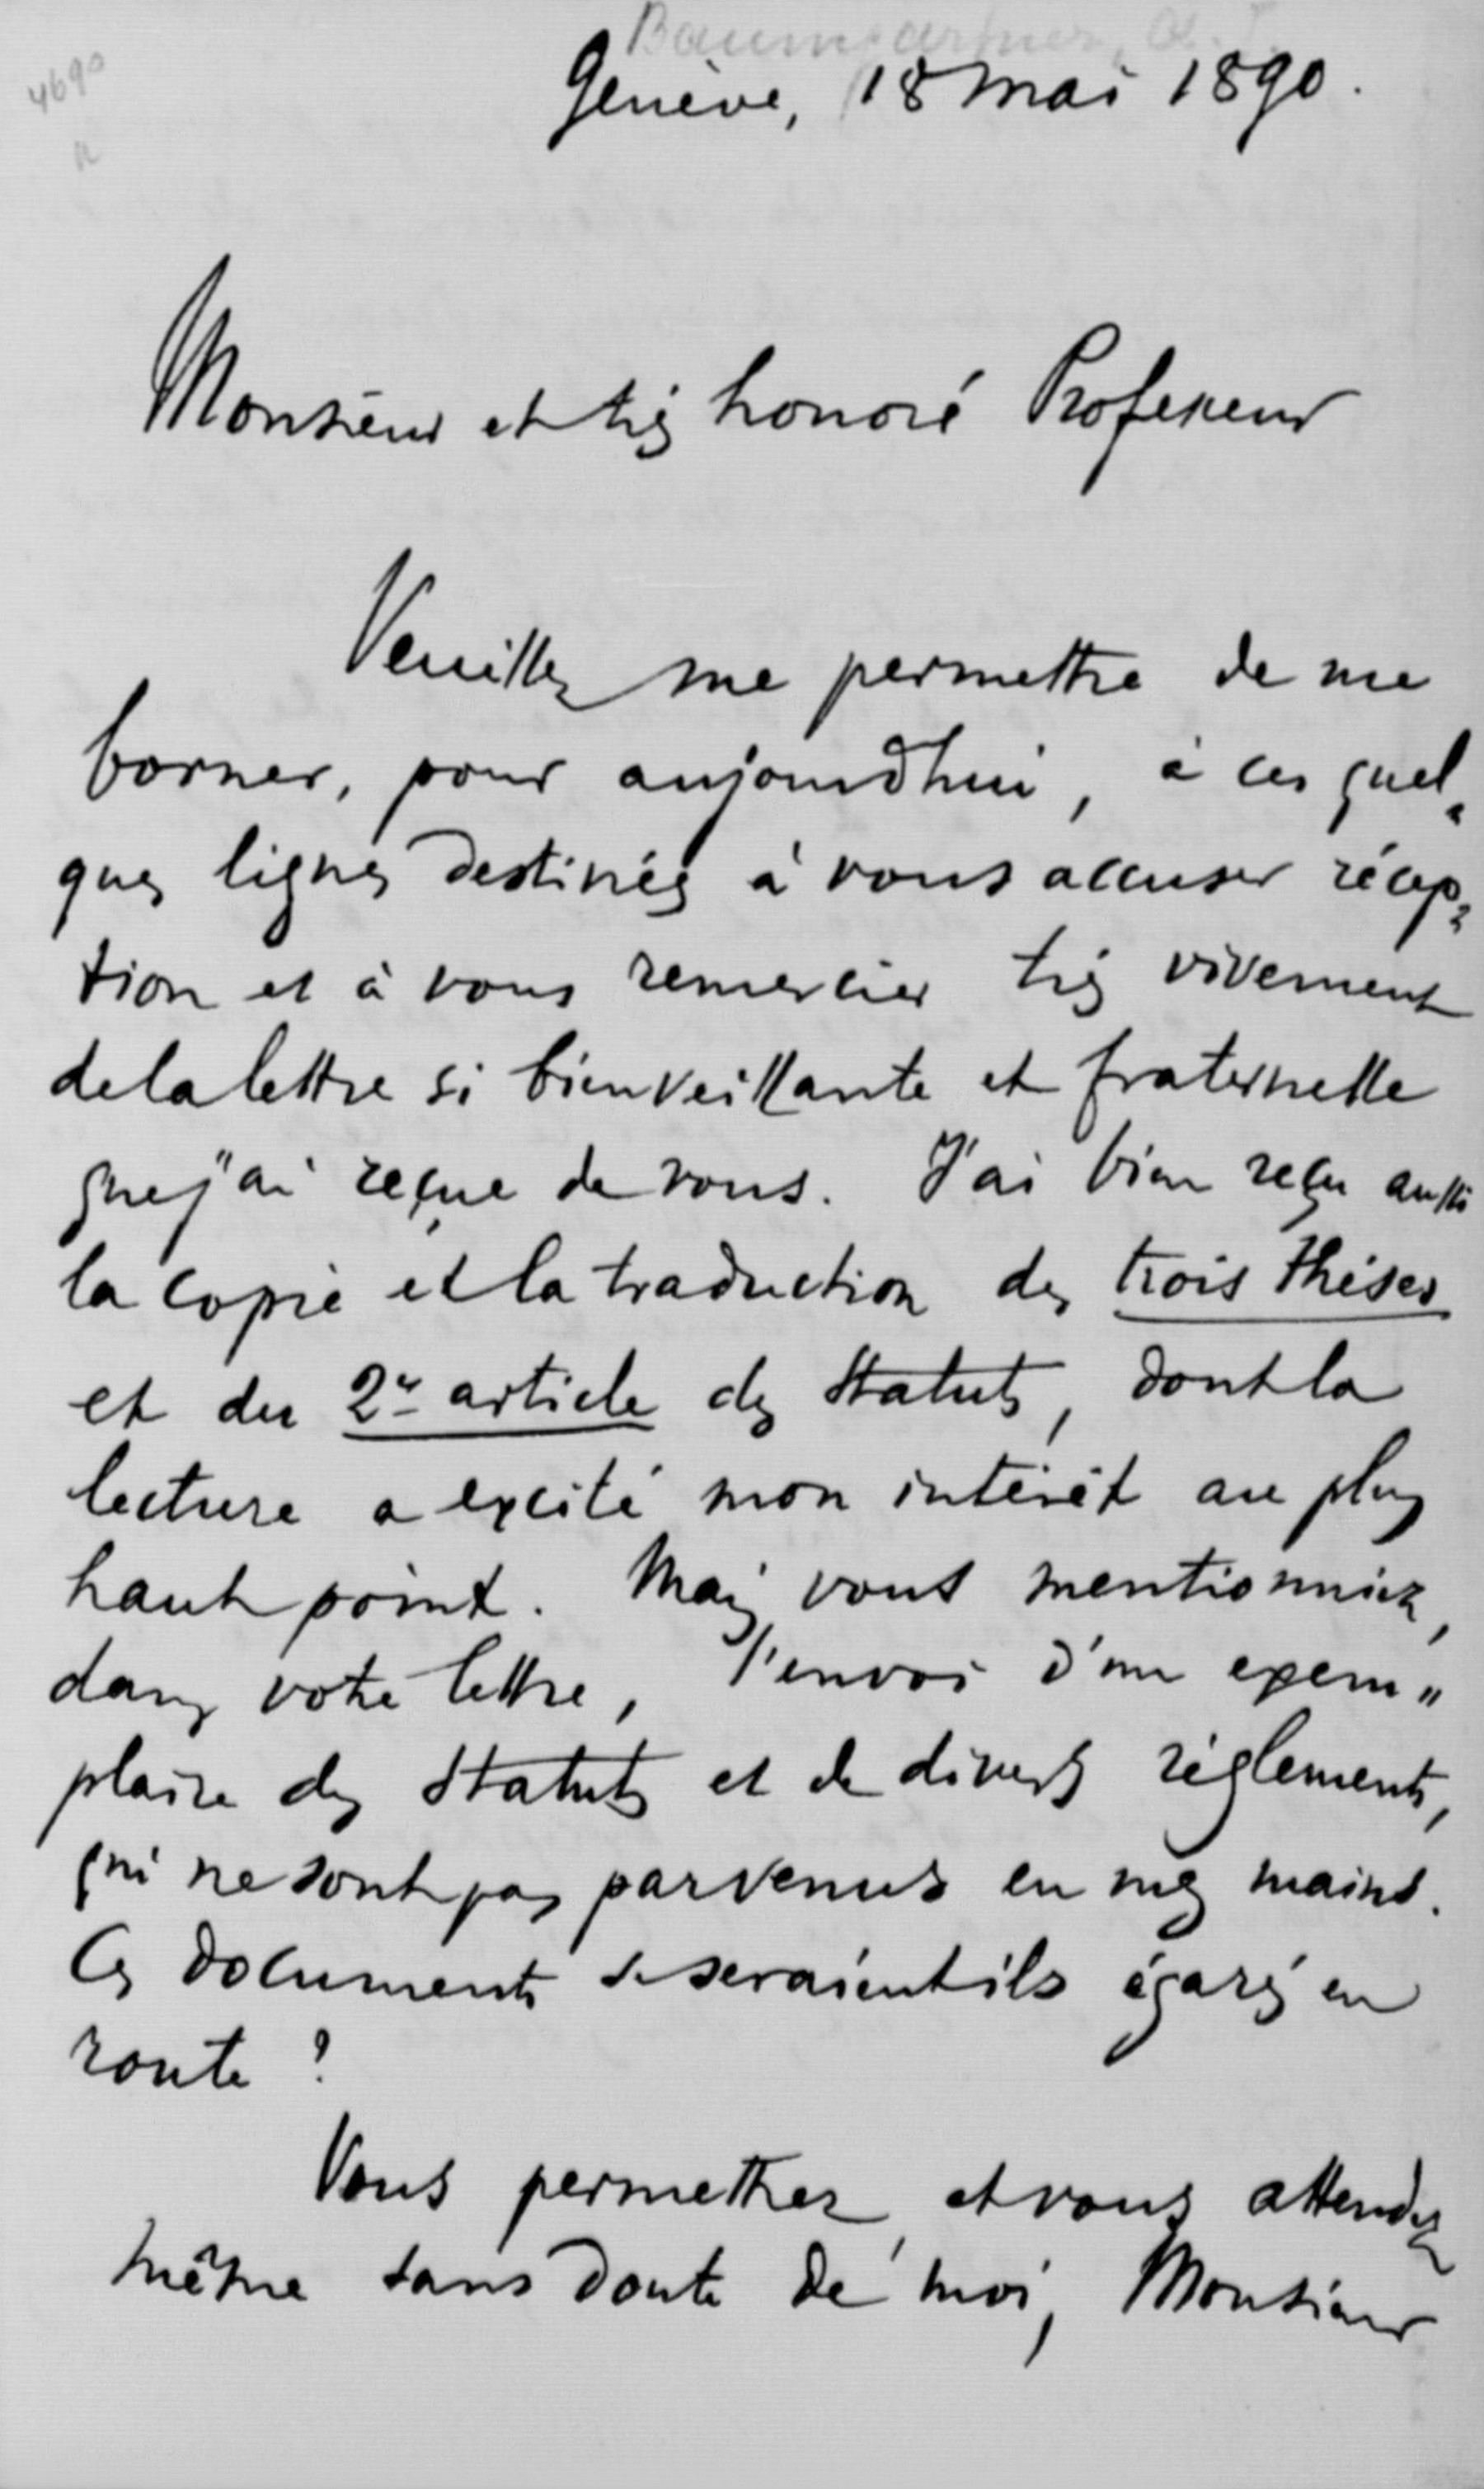 Baumgartner, A. J.
4690
Genève, 18 mai 1890.
Monsieur et très honoré Professeur
Veuillez me permettre de me
borner, pour aujourd'hui, à ces quel-
ques lignes destinées à vous accuser récep-
tion et à vous remercier très vivement
de la lettre si bienveillante et fraternelle
que j'ai reçue de vous. J'ai bien reçu aussi
la copie et la traduction des trois thèses
et du 2e article des Statuts, dont la
lecture a excité mon intérêt au plus
haut point. Mais vous mentionniez,
dans votre lettre, l'envoi d'un exem-
plaire des Statuts et de divers règlements,
qui ne sont pas parvenus en mes mains.
Ces documents se seraient ils égarés en
route ?
Vous permettrez, et vous attendez
même sans doute de moi, Monsieur